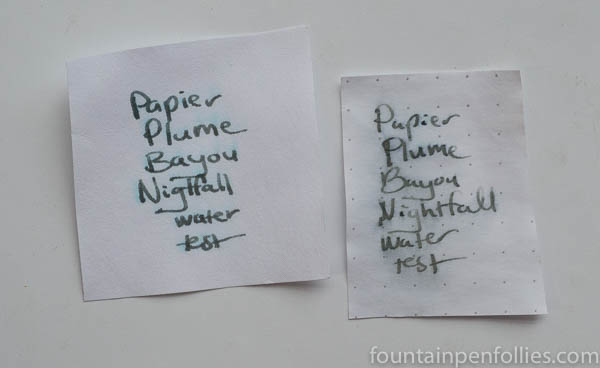 Papier
Plume
Bayou
Nightfall
water
test
Papier
Plume
Bayou
Nightfall
water
test
fountainpenfollies.com